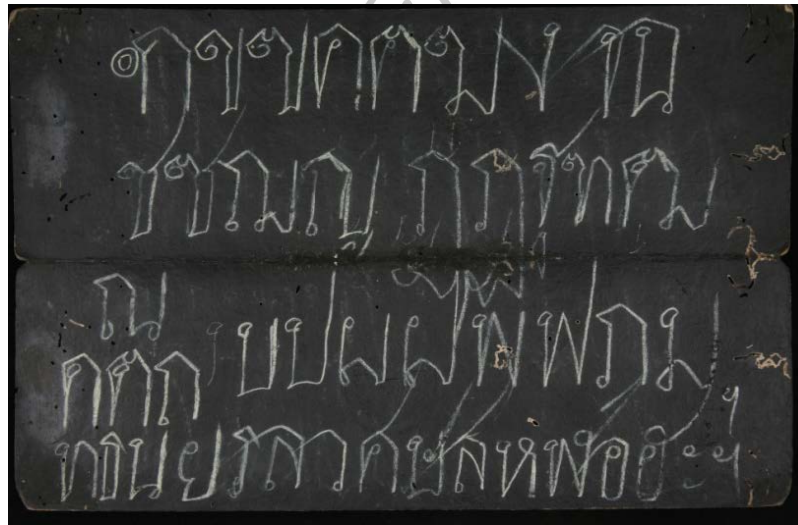 ๏ กขฃคฅฆงจฉ
ชซฌญฎฏฐฑฒ
ณ
บปผฝพฟภม
ดตถ
ทธนยรลวศษสหฬอฮะฯ